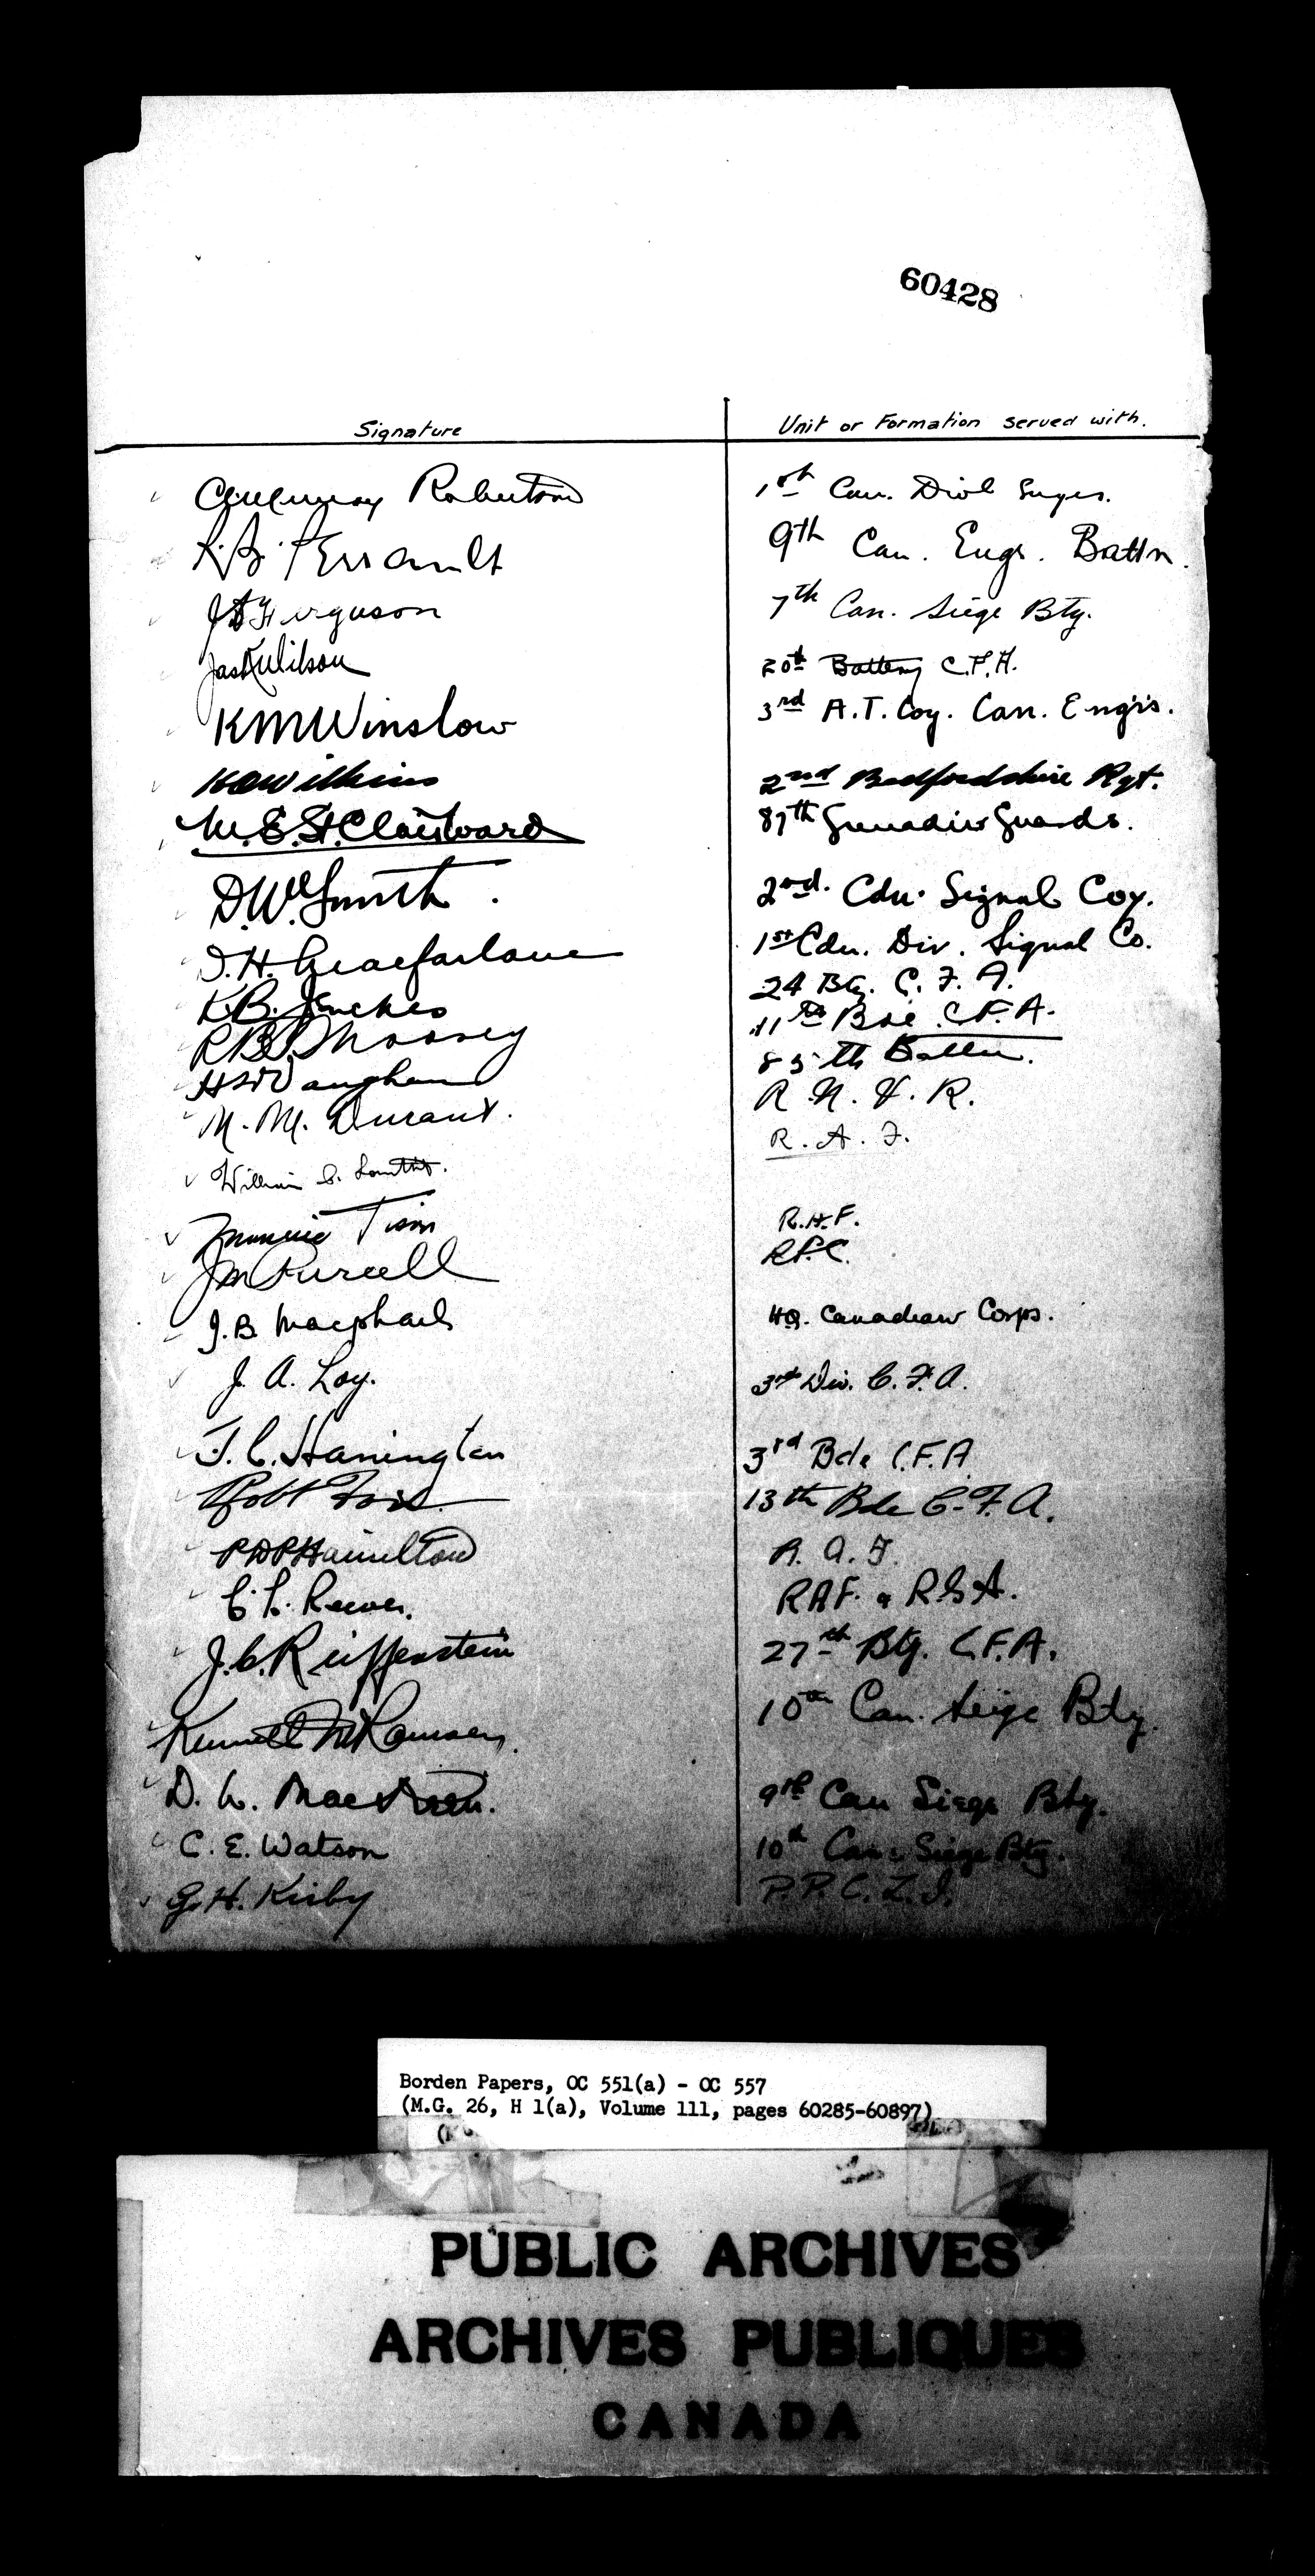 60428
Signature Unit or Formation served with.
Robertson 1st Can. Divl Engrs.
Perrault 9th Can. Engr. Battn.
Ferguson 7th Can. Siege Bty.
Jas Wilson 20th Battery C.F.A.
KM Winslow 3rd A.T. Coy. Can. Eng'rs.
Wilkins 2nd Bedfordshire Rgt.
M. E. St. Clair Ward 87th Grenadier Guards.
D. W. Smith. 2nd. Cdn. Signal Coy.
D. H. Macfarlane 1st Cdn. Div. Signal Co.
K. B. Jenckes 24 Bty. C. F. A.
Moosey 11th Bde. C.F.A.
Vaughan 85th Battn.
M. M. Durant. R. N. V. R.
William C. R. A. F.
Tison R.A.F.
J M Purcell R.F.C.
J. B. Macphail HQ. Canadian Corps.
J. A. Loy. 3rd Div. C. F. A.
J. C. Hanington 3rd Bde C.F.A
Robt 13th Bde C. F. A.
P D P Hamilton R. A. F.
C. L. RAF. & R.G.A.
J. C. Reiffenstein 27th Bty. C.F.A.
Kenneth M Ramsay. 10th Can. Seige Bty.
D. W. 9th Can Siege Bty.
C. E. Watson 10th Can. Siege Bty.
G. H. Kirby P. P. C. L. I.
Borden Papers, OC 551(a) - OC 557
(M.G. 26, H 1(a), Volume 111, pages 60285-60897)
PUBLIC ARCHIVES
ARCHIVES PUBLIQUES
CANADA